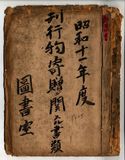 昭和十一年度
刊行物寄贈ニ関スル書類
図書室